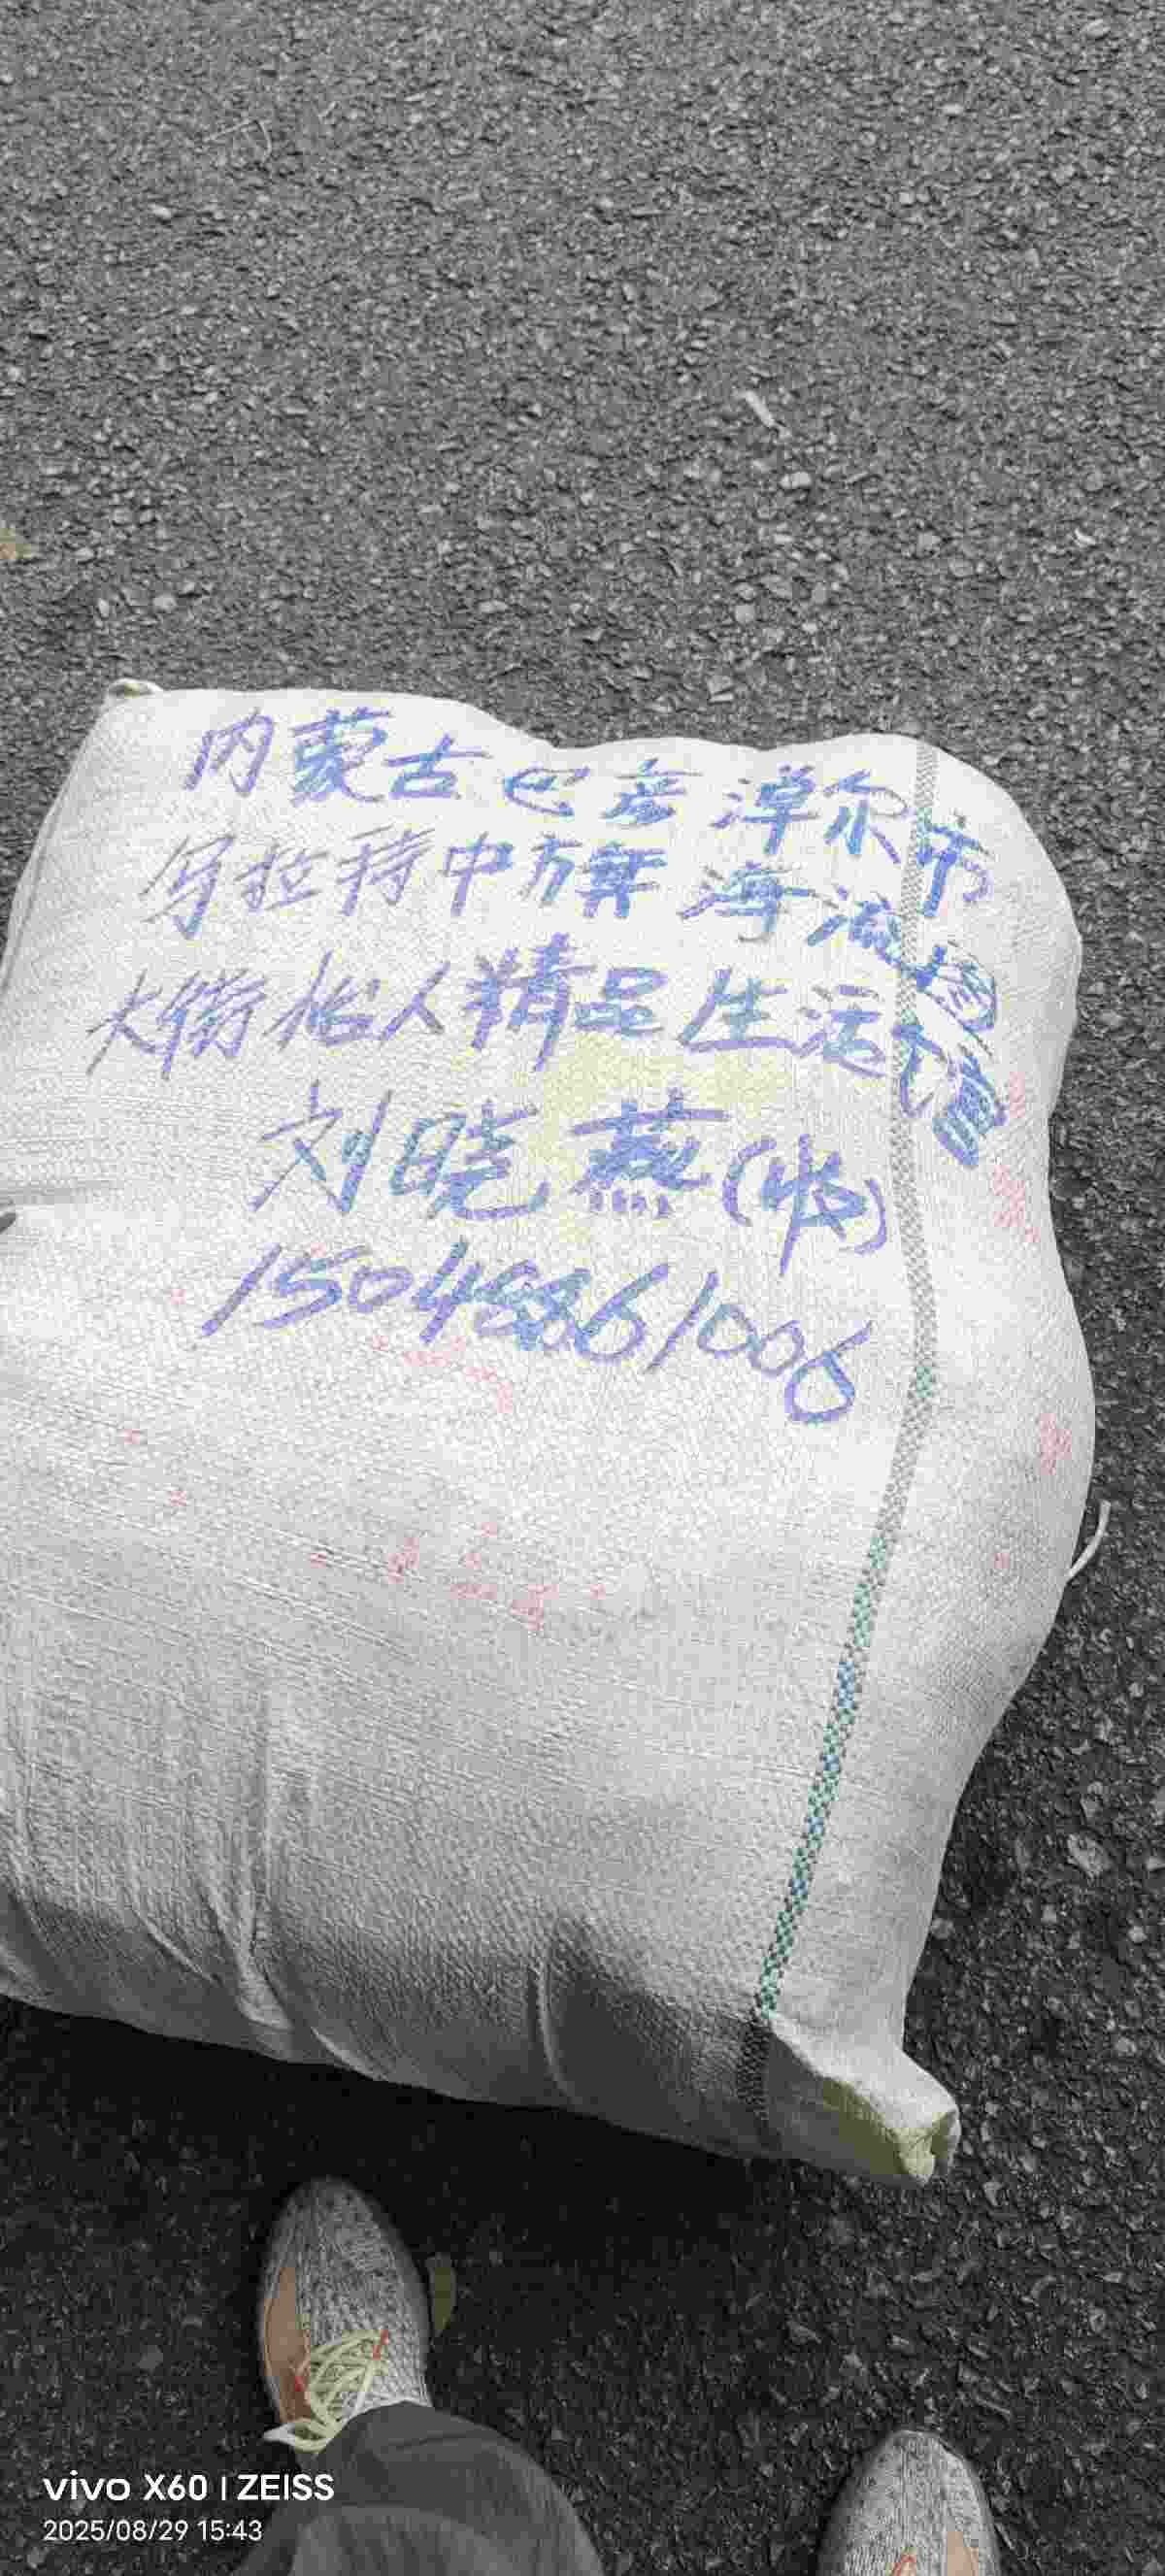 内蒙古巴彦淖尔市
乌拉特中旗海流图
大街怡人精品生活馆
刘晓燕(收)
15048861006
vivo X60 | ZEISS
2025/08/29 15:43